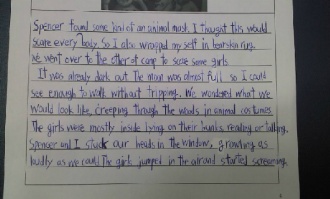 Spencer found some kind of an animal mask. I thought this would
scare every body. So I also wrapped my self in bearskin rug.
We went over to the other of camp to scare some girls
It was already dark out. The moon was almost full so I could
see enough to walk without tripping. We wondered what we
would look like, creeping through the woods in animal costumes.
The girls were mostly inside lying on their bunks, reading or talking.
Spencer and I stuck our heads in the window, growling as
loudly as we could The girls jumped in the air and started screaming.